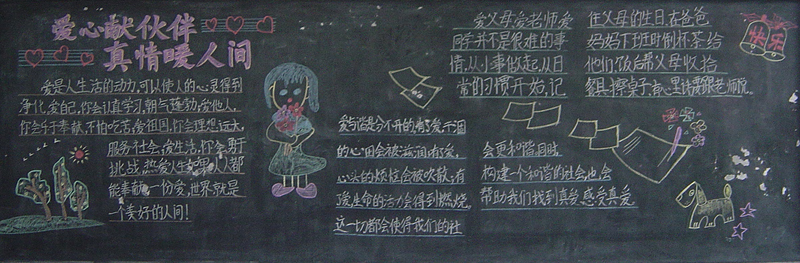 爱心献伙伴
真情暖人间
爱是人生活的动力,可以使人的心灵得到
净化,爱自己,你会认真学习,朝气蓬勃,爱他人,
你会乐于奉献,不怕吃苦,爱祖国,你会理想远大,
服务社会,爱生活,你会勇于
挑战,热爱人生吧,人人都
能奉献一份爱,世界就是
一个美好的人间!
爱与谐是分不开的,有了爱,干涸
的心田会被滋润,有爱,
心头的烦忧会被吹散,有
了爱,生命的活力会得到燃烧,
这一切都会使得我们的社
会更和谐,同时,
构建一个和谐的社会,也会
帮助我们找到真爱,感受真爱。
爱父母爱老师爱
同学并不是很难的事
情,从小事做起,从日
常的习惯开始,记
住父母的生日,在爸爸
妈妈下班时倒杯茶给
他们,饭后帮父母收拾
餐具,擦桌子,有心里话跟老师说。
快乐